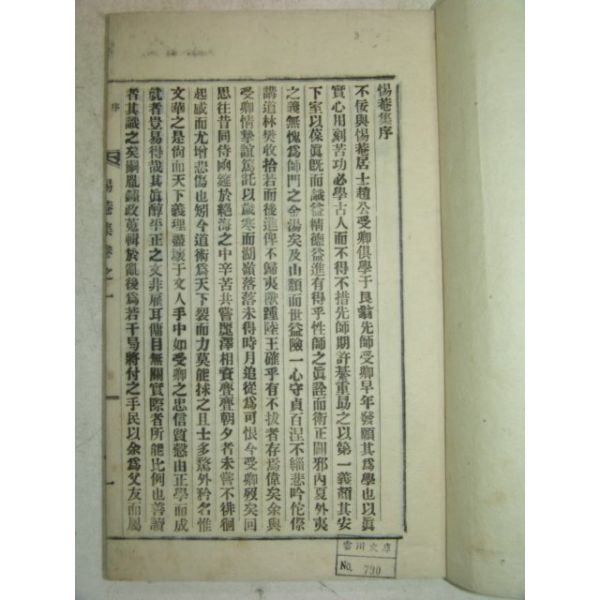 惕菴集序
不佞與惕菴居士趙公受卿俱學于艮翁先師受卿早年發願其爲學也以眞
實心用刻苦功必學古人而不得不措先師期許綦重勗之以第一義顏其安
下室以葆眞旣而識益精德益進有得乎性師之眞詮而衛正闢邪內夏外夷
之義無愧爲師門之金湯矣及山頹而世益險一心守貞百涅不緇悲吟佗傺
講道林樊收拾若而後進俾不歸夷獸踵陸王確乎有不拔者存焉偉矣余與
受卿情摯誼篤託以歲寒而湖嶺落落未得時月追從爲可恨今受卿歿矣回
思往昔同侍函筵於絶海之中辛苦共嘗麗澤相資亹亹朝夕者未嘗不徘徊
起感而尤增悲傷也矧今道術爲天下裂而力莫能捄之且士多騖外矜名惟
文華之是徇而天下義理盡壞于文人手中如受卿之忠信質慤由正學而成
就者豈易得哉其眞醇平正之文非雇耳傭目無關實際者所能比例也善讀
者其識之矣嗣胤鏞政蒐輯於亂後爲若干局將付之手民以余爲父友而屬
序
惕菴集卷之一
一
川文庫
No. 790